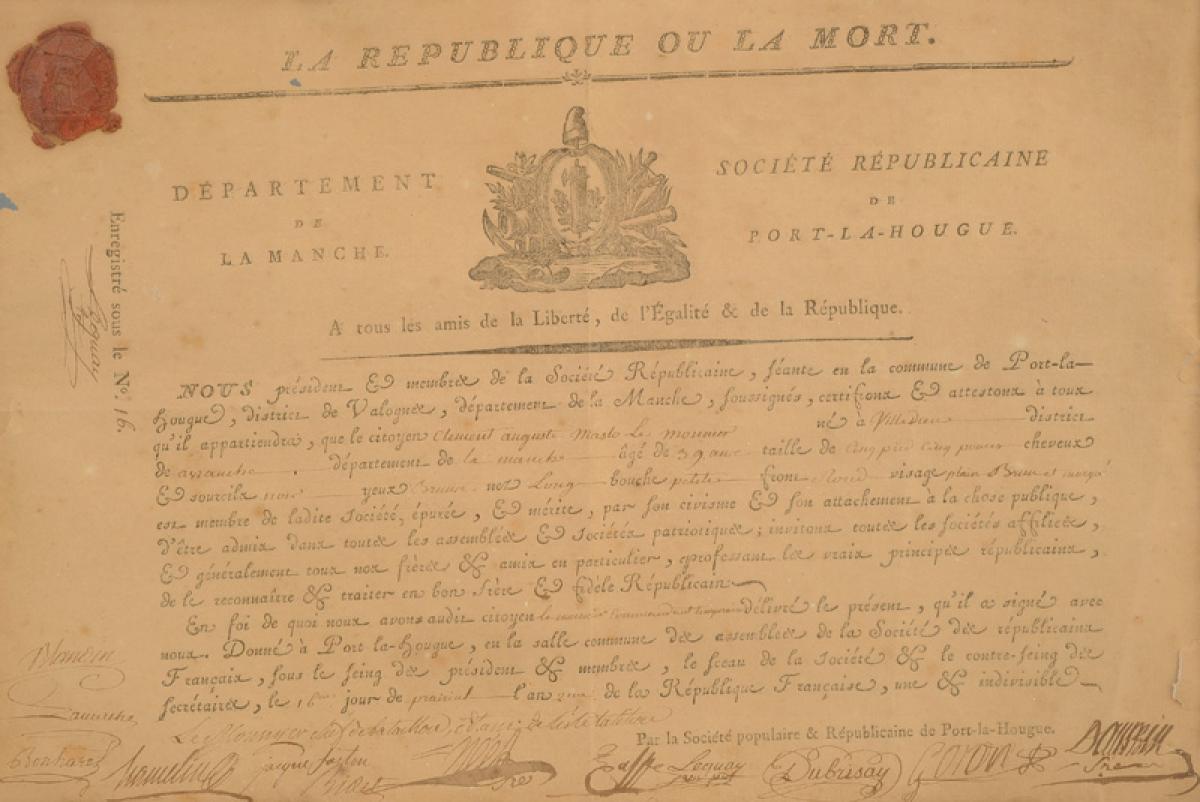 LA REPUBLIQUE OU LA MORT.
DÉPARTEMENT
DE
LA MANCHE.
SOCIÉTÉ RÉPUBLICAINE
DE
PORT-LA-HOUGUE.
Enregistré sous le No. 16.
Lequay
A tous les amis de la Liberté, de l'Égalité & de la République.
NOUS président & membres de la Société Républicaine, séante en la commune de Port-la-
Hougue, district de Valognes, département de la Manche, soussignés, certifions & attestons à tous
qu'il appartiendra, que le citoyen Clement auguste Malo Le monnier né à Villedieu district
de avranche. département de la manche âgé de 39 ans taille de Cinq pied Cinq pouces cheveux
& sourcils noir yeux Bruns nez Long bouche petite front Rond visage plain Brun et
est membre de ladite Société, épurée, & mérite, par son civisme & son attachement à la chose publique,
d'être admis dans toutes les assemblées & Sociétés patriotiques; invitons toutes les sociétés affiliées,
& généralement tous nos frères & amis en particulier, professant les vrais principes républicains,
de le reconnaître & traiter en bon Frère & fidèle Républicain.
En foi de quoi nous avons audit citoyen le monnier Commandant temporaire délivré le présent, qu'il a signé avec
nous. Donné à Port la-Hougue, en la salle commune des assemblées de la Société des républicains
Français, sous le seing des président & membres, le sceau de la Société & le contre-seing des
secrétaires, le 16 jour de prairial l'an 2me de la République Française, une & indivisible
Le Monnyer chef de bataillon
Par la Société populaire & Républicaine de Port-la-Hougue.
Bonhare hamelin Lequay Dubrisay Goron